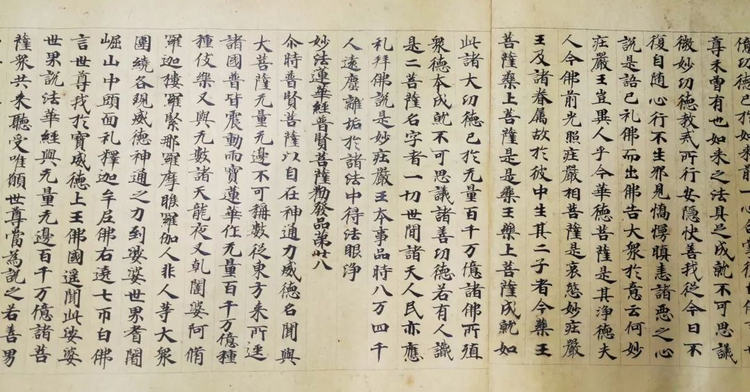 億功德已於如來前一心合
尊未曾有也如来之法具足成就不可思議
微妙功德教戒所行安隱快善我從今日不
復自随心行不生邪見憍慢瞋恚諸惡之心
說是語已礼佛而出佛告大衆於意云何妙
莊嚴王豈異人乎今華德菩薩是其淨德夫
人今佛前光照莊嚴相菩薩是哀愍妙莊嚴
王及諸眷属故於彼中生其二子者今藥王
菩薩藥上菩薩是是藥王藥上菩薩成就如
此諸大功德已於无量百千万億諸佛所殖
衆德本成就不可思議諸善功德若有人識
是二菩薩名字者一切世間諸天人民亦應
礼拜佛說是妙莊嚴王本事品時八万四千
人遠塵離垢於諸法中得法眼淨
妙法蓮華經普賢菩薩勸發品第廿八
尒時普賢菩薩以自在神通力威德名聞與
大菩薩无量无邊不可稱數從東方来所逕
諸國普皆震動雨寶蓮華作无量百千万億種
種伎樂又與无數諸天龍夜叉乹闥婆阿脩
羅迦樓羅緊那羅摩睺羅伽人非人等大衆
圍繞各現威德神通之力到娑婆世界耆闍
崛山中頭面礼釋迦牟尼佛右遶七帀白佛
言世尊我於寶威德上王佛國遥聞此娑婆
世界說法華經與无量无邊百千万億諸菩
薩衆共来聽受唯願世尊當為說之若善男